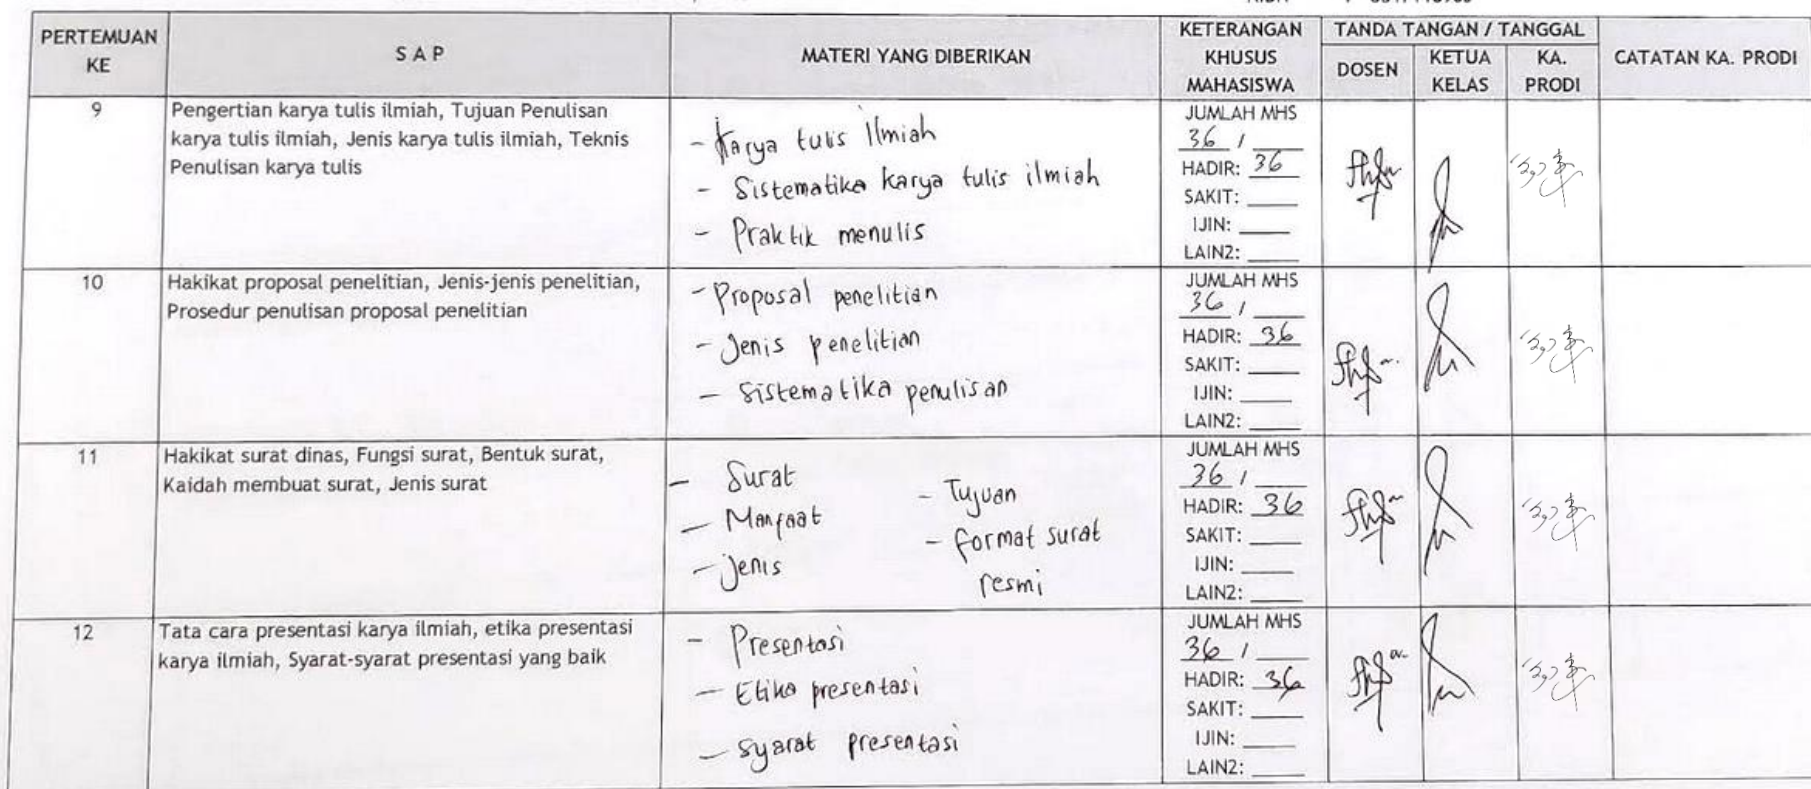 PERTEMUAN KE
S A P
MATERI YANG DIBERIKAN
KETERANGAN KHUSUS MAHASISWA
TANDA TANGAN / TANGGAL
DOSEN
KETUA KELAS
KA. PRODI
CATATAN KA. PRODI
9
Pengertian karya tulis ilmiah, Tujuan Penulisan
karya tulis ilmiah, Jenis karya tulis ilmiah, Teknis
Penulisan karya tulis
- Karya tulis ilmiah
- Sistematika karya tulis ilmiah
- Praktik menulis
JUMLAH MHS
36 / ___
HADIR: 36
SAKIT: ___
IJIN: ___
LAIN2: ___
10
Hakikat proposal penelitian, Jenis-jenis penelitian,
Prosedur penulisan proposal penelitian
- Proposal penelitian
- Jenis penelitian
- Sistematika penulisan
JUMLAH MHS
36 / ___
HADIR: 36
SAKIT: ___
IJIN: ___
LAIN2: ___
11
Hakikat surat dinas, Fungsi surat, Bentuk surat,
Kaidah membuat surat, Jenis surat
- Surat
- Manfaat
- Jenis
- Tujuan
- format surat
resmi
JUMLAH MHS
36 / ___
HADIR: 36
SAKIT: ___
IJIN: ___
LAIN2: ___
12
Tata cara presentasi karya ilmiah, etika presentasi
karya ilmiah, Syarat-syarat presentasi yang baik
- Presentasi
- Etika presentasi
- syarat presentasi
JUMLAH MHS
36 / ___
HADIR: 36
SAKIT: ___
IJIN: ___
LAIN2: ___